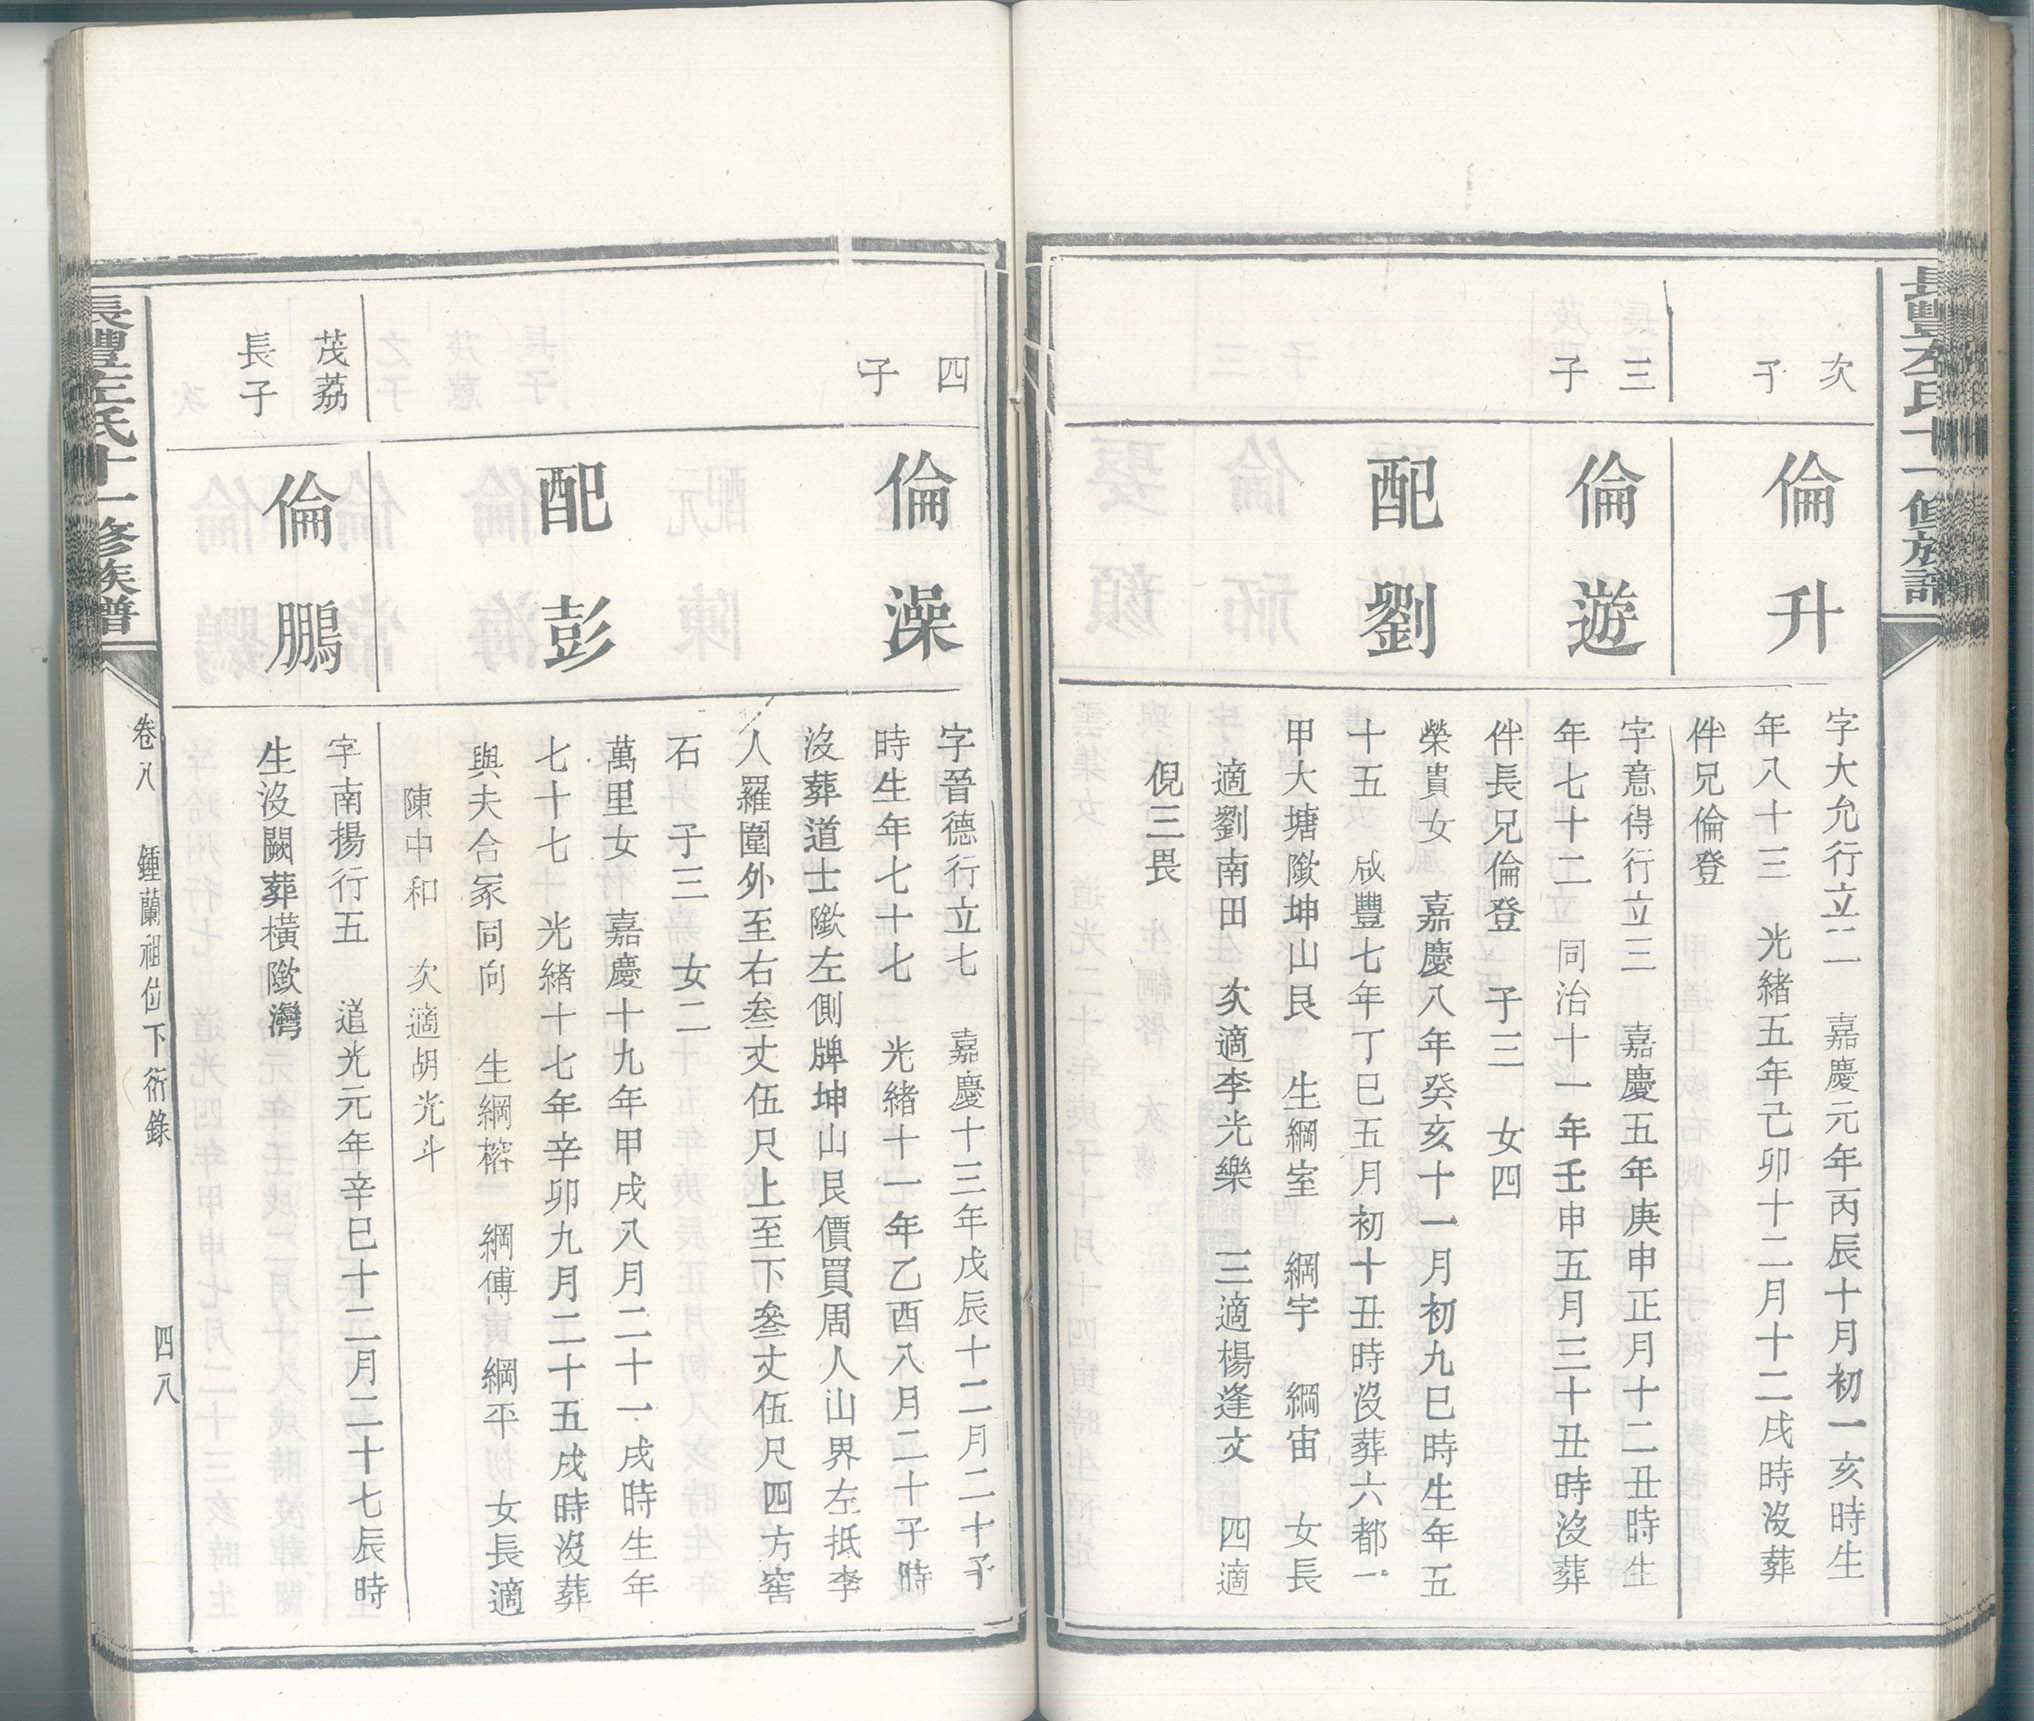 長豐左氏十一修族譜
次子
倫升
字大允行立二　嘉慶元年丙辰十月初一亥時生
年八十三　光緒五年己卯十二月十二戌時沒葬
伴兄倫登
三子
倫遊
字意得行立三　嘉慶五年庚申正月十二丑時生
年七十二　同治十一年壬申五月三十丑時沒葬
伴長兄倫登　子三　女四
配劉
榮貴女　嘉慶八年癸亥十一月初九巳時生年五
十五　咸豐七年丁巳五月初十丑時沒葬六都一
甲大塘墈坤山艮　生綱室　綱宇　綱宙　女長
適劉南田　次適李光樂　三適楊逢文　四適
倪三畏
四子
倫澡
字晉德行立七　嘉慶十三年戊辰十二月二十子
時生年七十七　光緒十一年乙酉八月二十子時
沒葬道士墈左側牌坤山艮價買周人山界左抵李
人羅圍外至右叁丈伍尺上至下叁丈伍尺四方窖
石　子三　女二
配彭
萬里女　嘉慶十九年甲戌八月二十一戌時生年
七十七　光緒十七年辛卯九月二十五戌時沒葬
與夫合冢同向　生綱榕　綱傅　綱平　女長適
陳中和　次適胡光斗
茂荔
長子
倫鵬
字南揚行五　道光元年辛巳十二月二十七辰時
生沒闕葬橫墈灣
長豐左氏十一修族譜
卷八　鍾蘭祖位下衍錄　四八